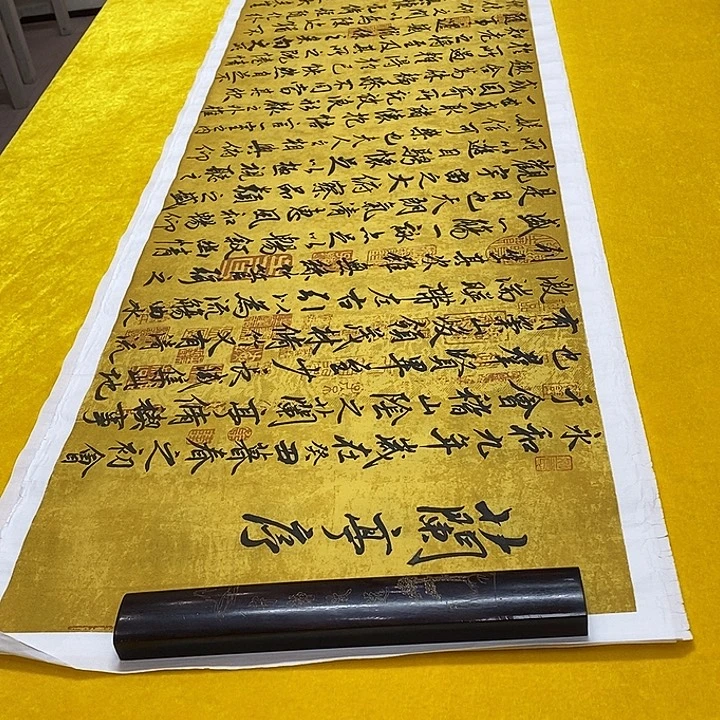 蘭亭序
永和九年歲在癸丑暮春之初會
于會稽山陰之蘭亭脩禊事
也羣賢畢至少長咸集此地
有崇山峻領茂林脩竹又有清流
激湍暎帶左右引以為流觴曲水
列坐其次雖無絲竹管弦之
盛一觴一詠亦足以暢敘幽情
是日也天朗氣清惠風和暢仰
觀宇宙之大俯察品類之盛
所以遊目騁懷足以極視聽之
娛信可樂也夫人之相與俯仰
一世或取諸懷抱悟言一室之內
或因寄所託放浪形骸之外雖
趣舍萬殊靜躁不同當其欣
於所遇暫得於己快然自足不